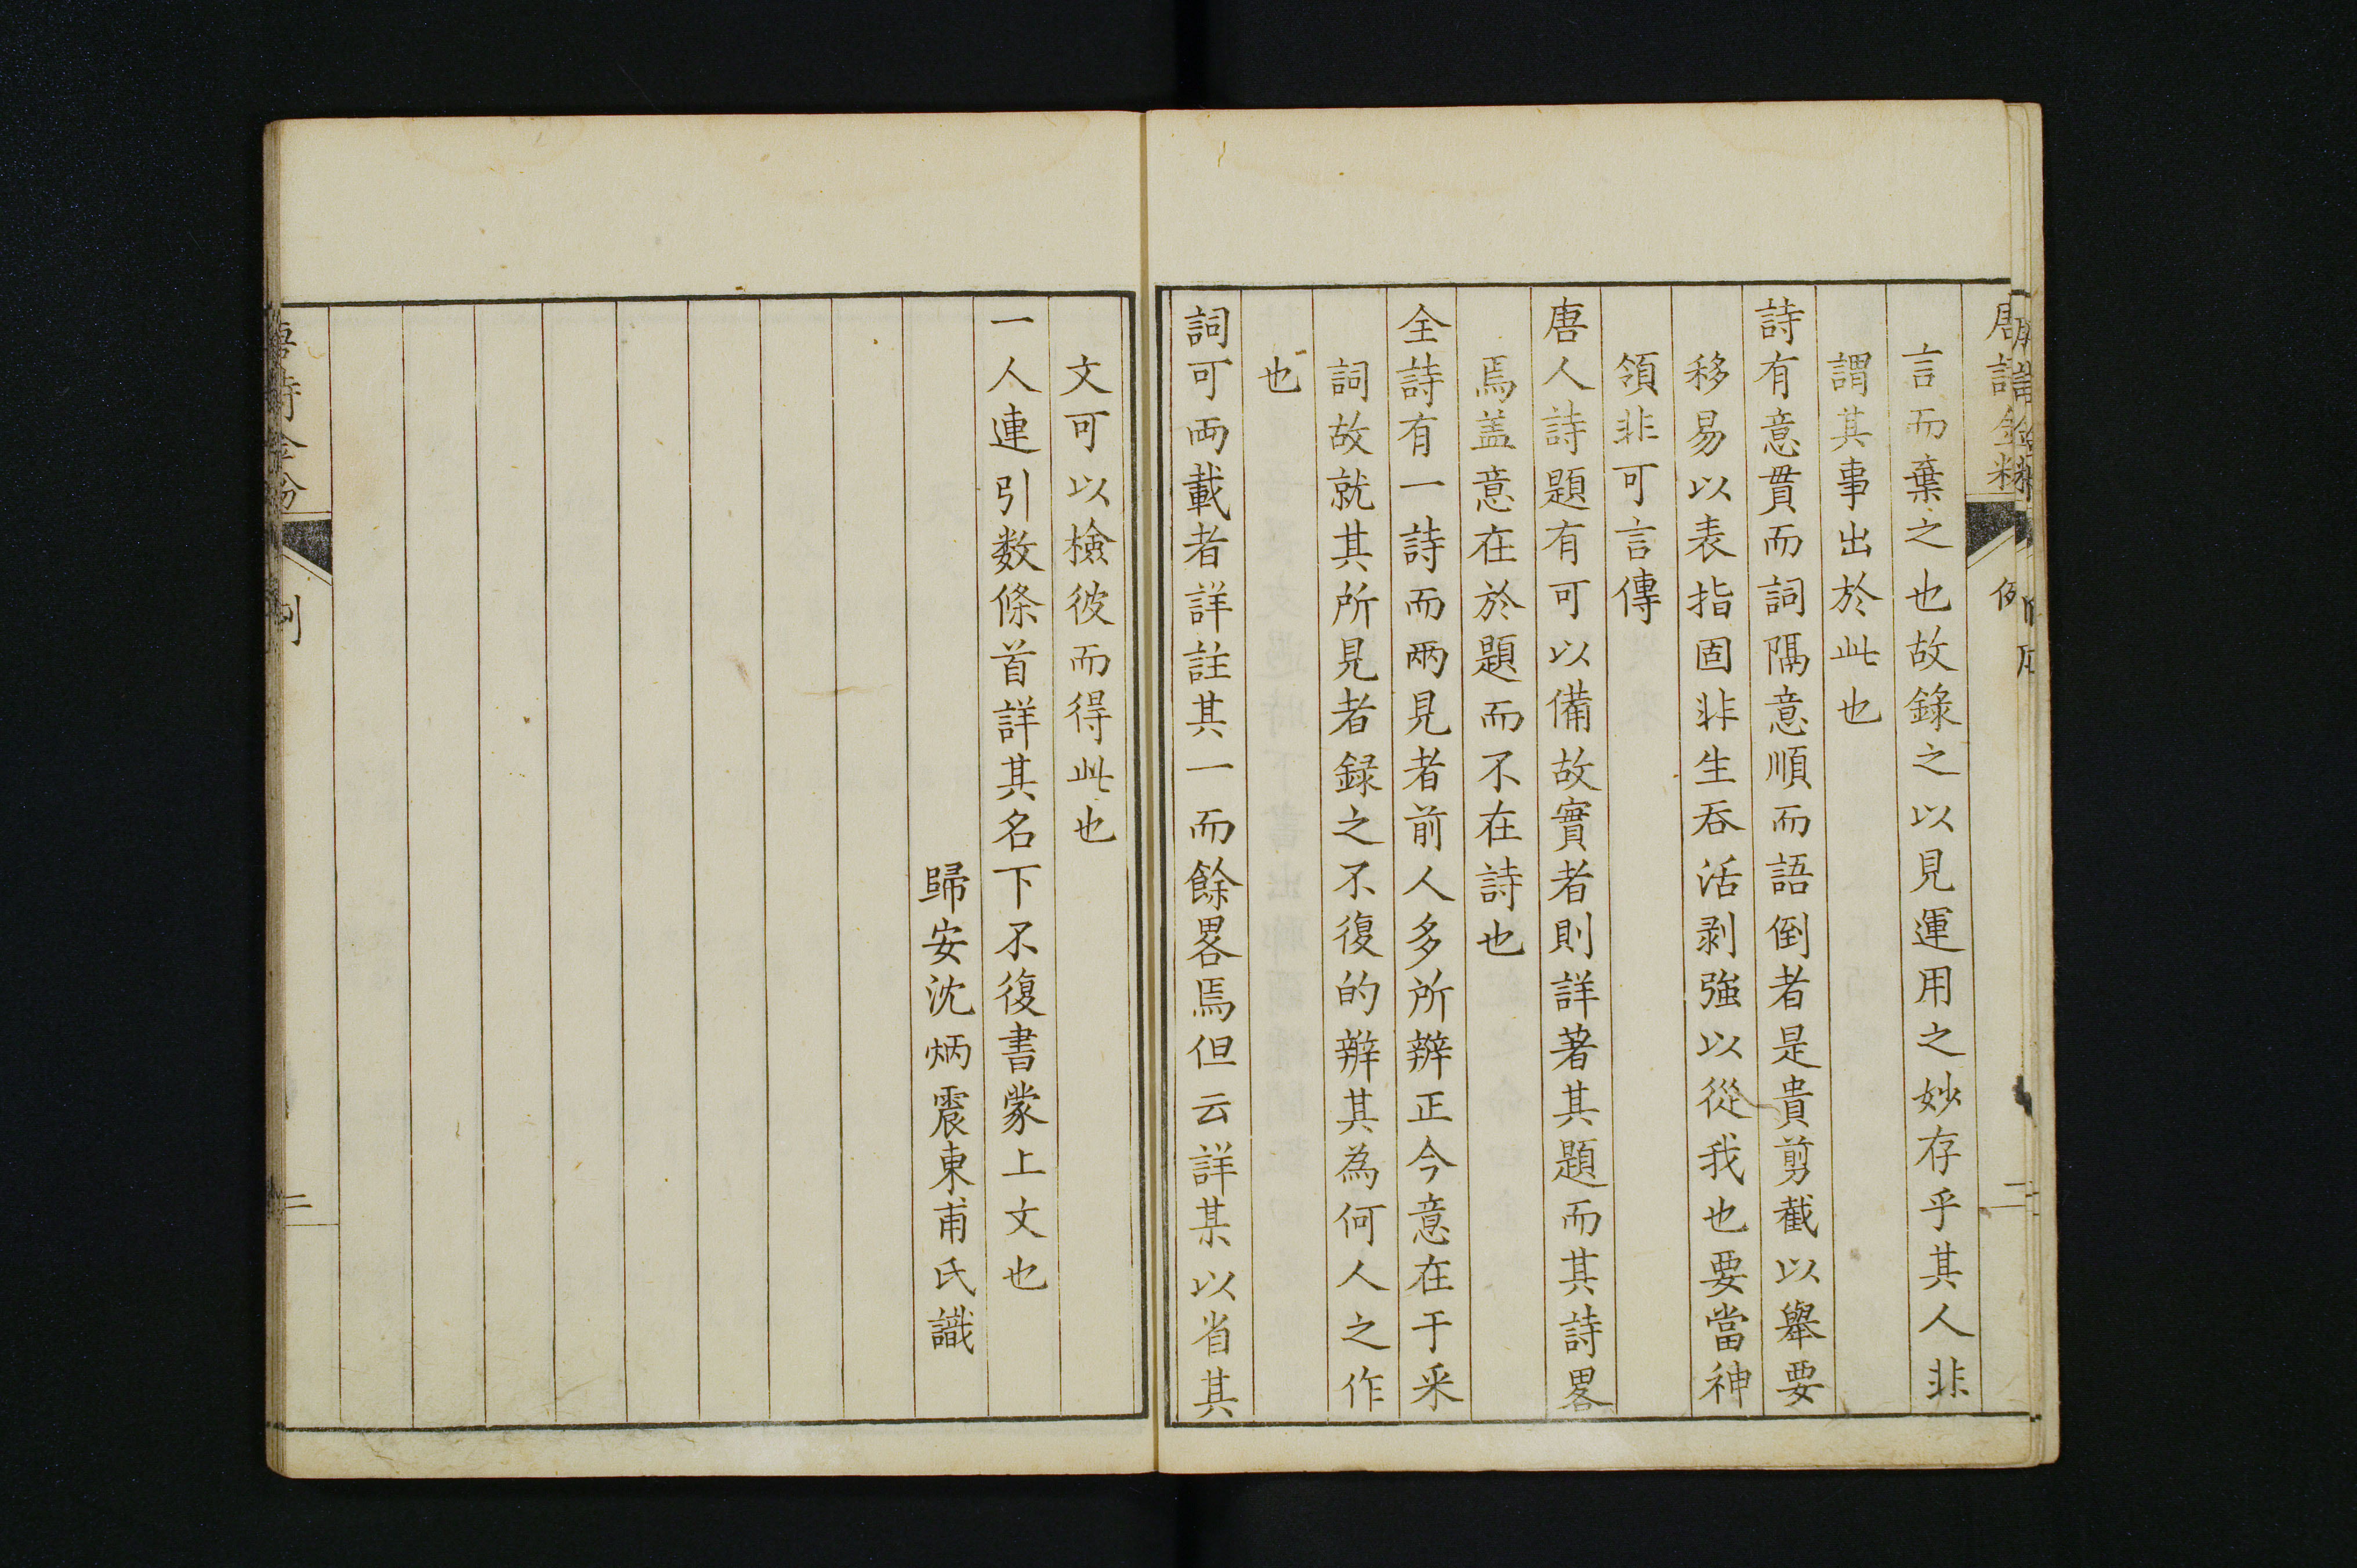 言而棄之也故錄之以見運用之妙存乎其人非
謂其事出於此也
詩有意貫而詞隔意順而語倒者是貴剪截以舉要
移易以表指固非生吞活剥強以從我也要當神
領非可言傳
唐人詩題有可以備故實者則詳著其題而其詩畧
焉盖意在於題而不在詩也
全詩有一詩而兩見者前人多所辨正今意在于采
詞故就其所見者録之不復的辨其為何人之作
也
詞可兩載者詳註其一而餘畧焉但云詳某以省其
文可以檢彼而得此也
一人連引数條首詳其名下不復書蒙上文也
歸安沈炳震東甫氏識
唐詩金粉
例
二